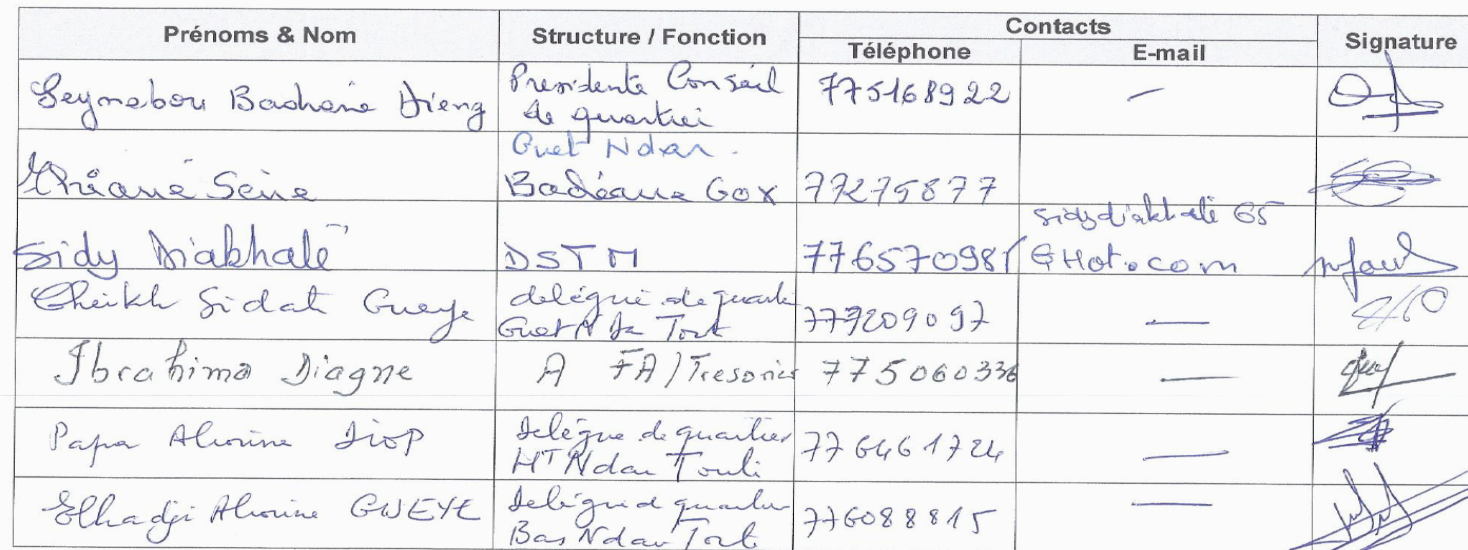 Prénoms & Nom Structure / Fonction Contacts Signature
Téléphone E-mail
Seynabou Bachane Dieng Presidente Conseil de quartier Guet Ndar. 775168922 —
Seine Badéane Gox 77275877
Sidy Diakhalé DSTM 776570981 sidydiakhale 65 @Hot.com
Cheikh Sidat Gueye delégué de quart Guet N Da Tout 779209097 —
Ibrahima Diagne A FA/Tresorier 775060336 —
Papa Alioune Diop Délégue de quartier HT Ndar Touti 776461724 —
Elhadji Alioune GUEYE Delégué d quartier Bas Ndar Tout 776088815 —